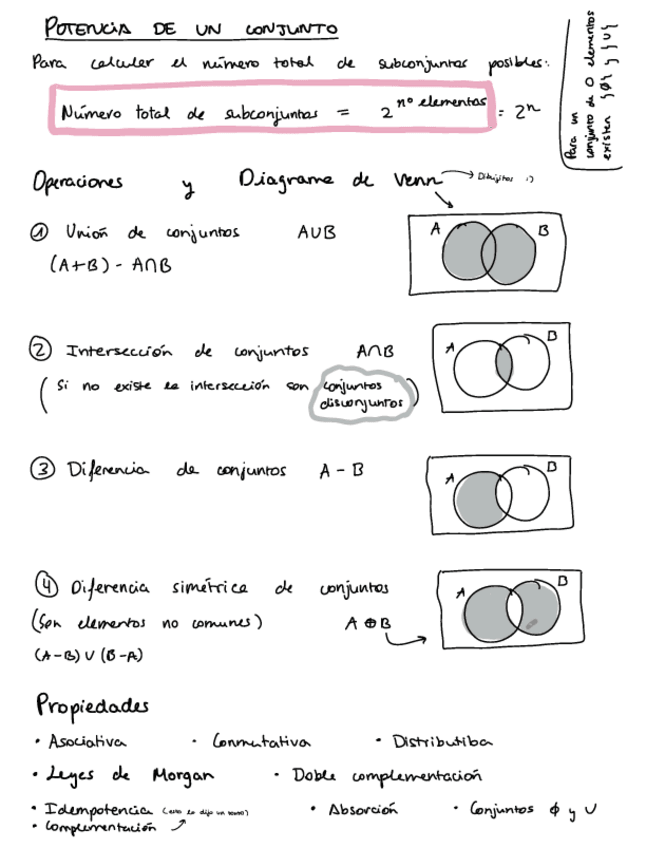 POTENCIA DE UN CONJUNTO
Para calcular el número total de subconjuntos posibles:
Número total de subconjuntos = 2^nº elementos = 2^n
Para un
conjunto de 0 elementos
existen
Operaciones y Diagrama de Venn → Dibujitos :)
① Unión de conjuntos A∪B
(A+B) - A∩B
A B
② Intersección de conjuntos A∩B
(Si no existe la intersección son conjuntos
disconjuntos)
A B
③ Diferencia de conjuntos A - B
A B
④ Diferencia simétrica de conjuntos
(Son elementos no comunes) A ⊕ B
(A-B) ∪ (B-A)
A B
Propiedades
· Asociativa · Conmutativa · Distributiba
· Leyes de Morgan · Doble complementación
· Idempotencia · Absorción · Conjuntos ϕ y U
· Complementación